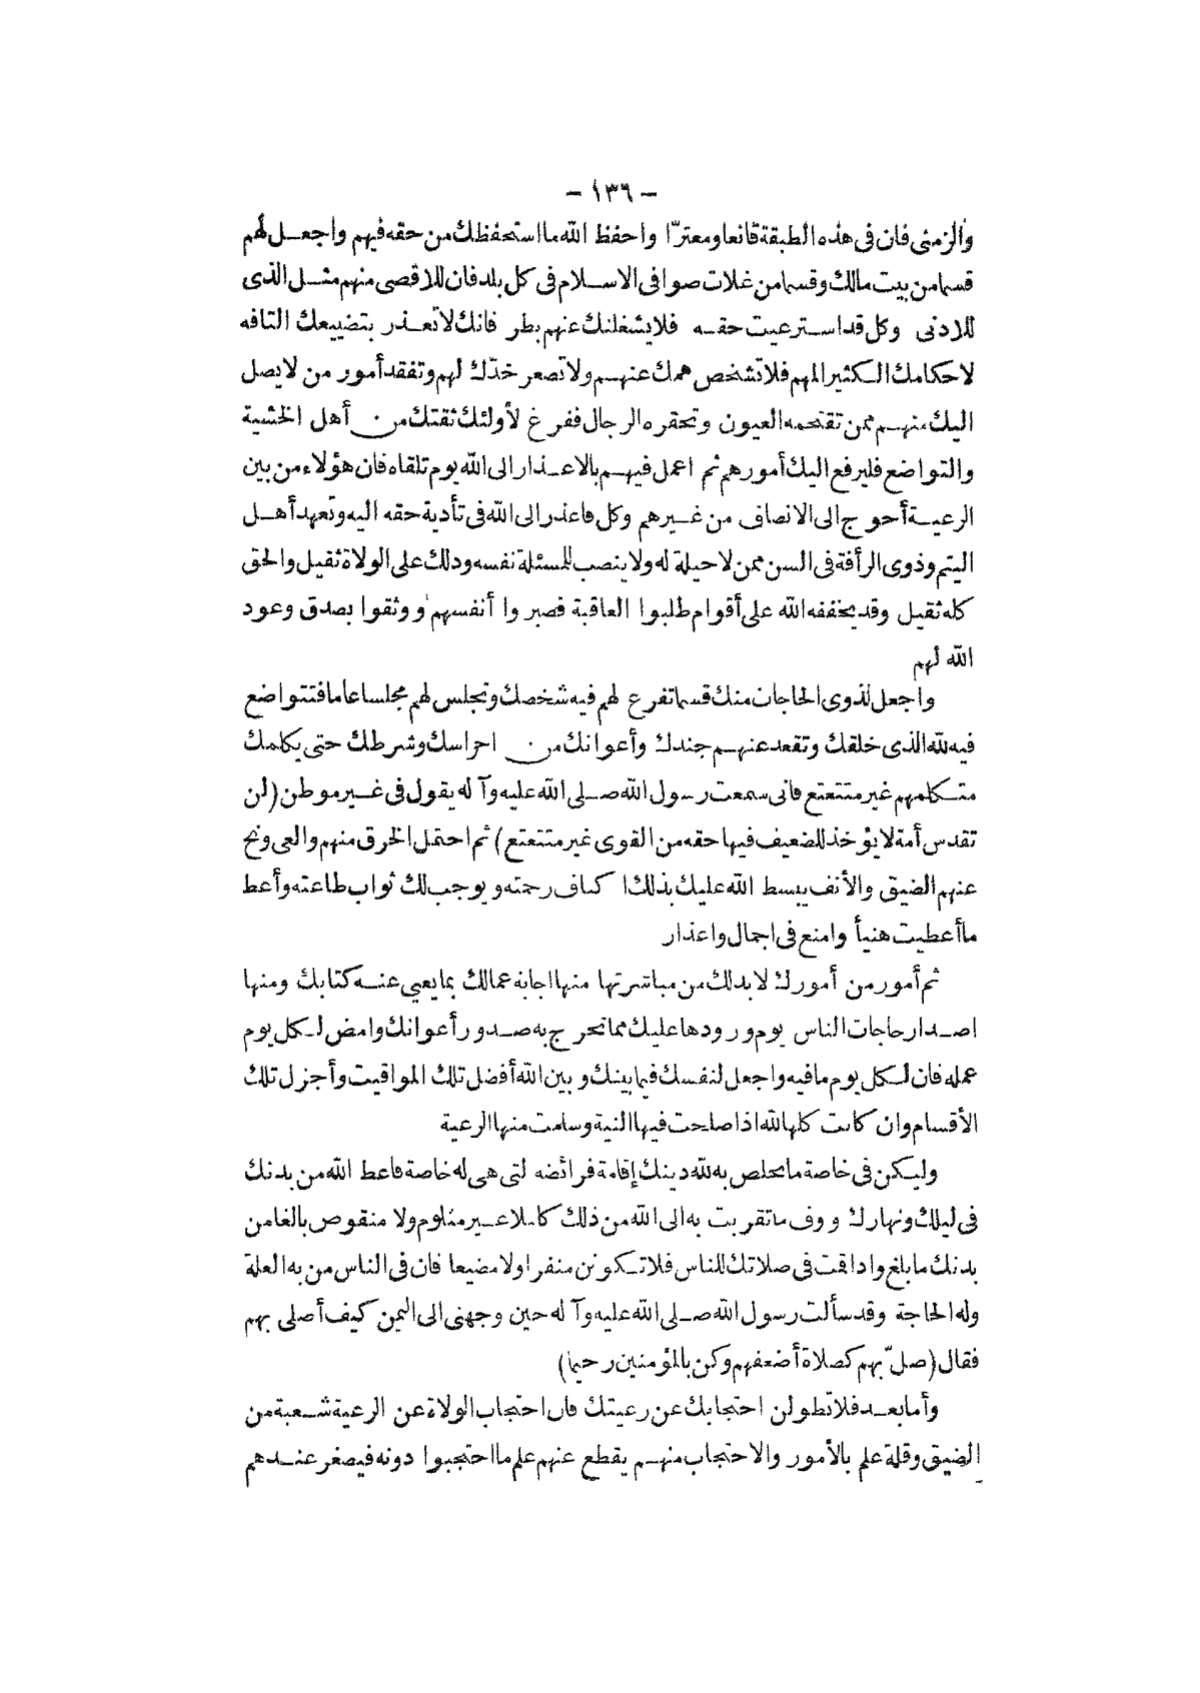 - ١٣٦ -
والزمنى فان فى هذه الطبقة قانعا ومعترّا واحفظ الله ما استحفظك من حقه فيهم واجعل لهم
قسما من بيت مالك وقسما من غلات صوافى الاسلام فى كل بلد فان للاقصى منهم مثل الذى
للادنى وكل قد استرعيت حقه فلا يشغلنك عنهم بطر فانك لا تعذر بتضييعك التافه
لاحكامك الكثير المهم فلا تشخص همك عنهم ولا تصعر خدّك لهم وتفقد أمور من لا يصل
اليك منهم ممن تقتحمه العيون وتحقره الرجال ففرغ لأولئك ثقتك من أهل الخشية
والتواضع فليرفع اليك أمورهم ثم اعمل فيهم بالاعذار الى الله يوم تلقاه فان هؤلاء من بين
الرعية أحوج الى الانصاف من غيرهم وكل فاعذر الى الله فى تأدية حقه اليه وتعهد أهل
اليتم وذوى الرأفة فى السن ممن لا حيلة له ولا ينصب للمسئلة نفسه ودلك على الولاة ثقيل والحق
كله ثقيل وقد يخففه الله على أقوام طلبوا العاقبة فصبروا أنفسهم ووثقوا بصدق وعود
الله لهم
واجعل لذوى الحاجات منك قسما تفرغ لهم فيه شخصك وتجلس لهم مجلسا عاما فتتواضع
فيه لله الذى خلقك وتقعد عنهم جندك وأعوانك من احراسك وشرطك حتى يكلمك
متكلمهم غير متتعتع فانى سمعت رسول الله صلى الله عليه وآله يقول فى غير موطن (لن
تقدس أمة لا يؤخذ للضعيف فيها حقه من القوى غير متتعتع) ثم احتمل الخرق منهم والعى ونح
عنهم الضيق والأنف يبسط الله عليك بذلك اكناف رحمته ويوجب لك ثواب طاعته وأعط
ما أعطيت هنيأ وامنع فى اجمال واعذار
ثم أمور من أمورك لا بد لك من مباشرتها منها اجابة عمالك بما يعيى عنه كتابك ومنها
اصدار حاجات الناس يوم ورودها عليك مما تحرج به صدور أعوانك وامض لكل يوم
عمله فان لكل يوم ما فيه واجعل لنفسك فيما بينك وبين الله أفضل تلك المواقيت وأجزل تلك
الأقسام وان كانت كلها لله اذا صلحت فيها النية وسلمت منها الرعية
وليكن فى خاصة ما تخلص به لله دينك إقامة فرائضه لتى هى له خاصة فاعط الله من بدنك
فى ليلك ونهارك ووف ما تقربت به الى الله من ذلك كاملا غير مثلوم ولا منقوص بالغا من
بدنك ما بلغ واداقمت فى صلاتك للناس فلا تكونن منفرا ولا مضيعا فان فى الناس من به العلة
وله الحاجة وقد سألت رسول الله صلى الله عليه وآله حين وجهنى الى اليمن كيف أصلى بهم
فقال (صلّ بهم كصلاة أضعفهم وكن بالمؤمنين رحيما)
وأما بعد فلا تطولن احتجابك عن رعيتك فان احتجاب الولاة عن الرعية شعبة من
الضيق وقلة علم بالأمور والاحتجاب منهم يقطع عنهم علم ما احتجبوا دونه فيصغر عندهم